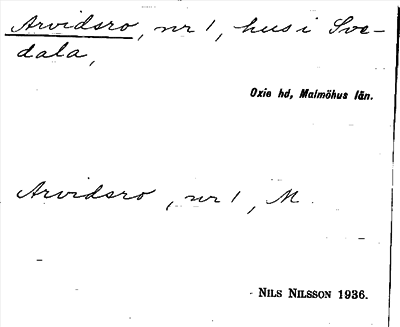 Arvidsro, nr 1, hus i Sve-
dala,
Oxie hd, Malmöhus län.
Arvidsro, nr 1, M.
NILS NILSSON 1936.